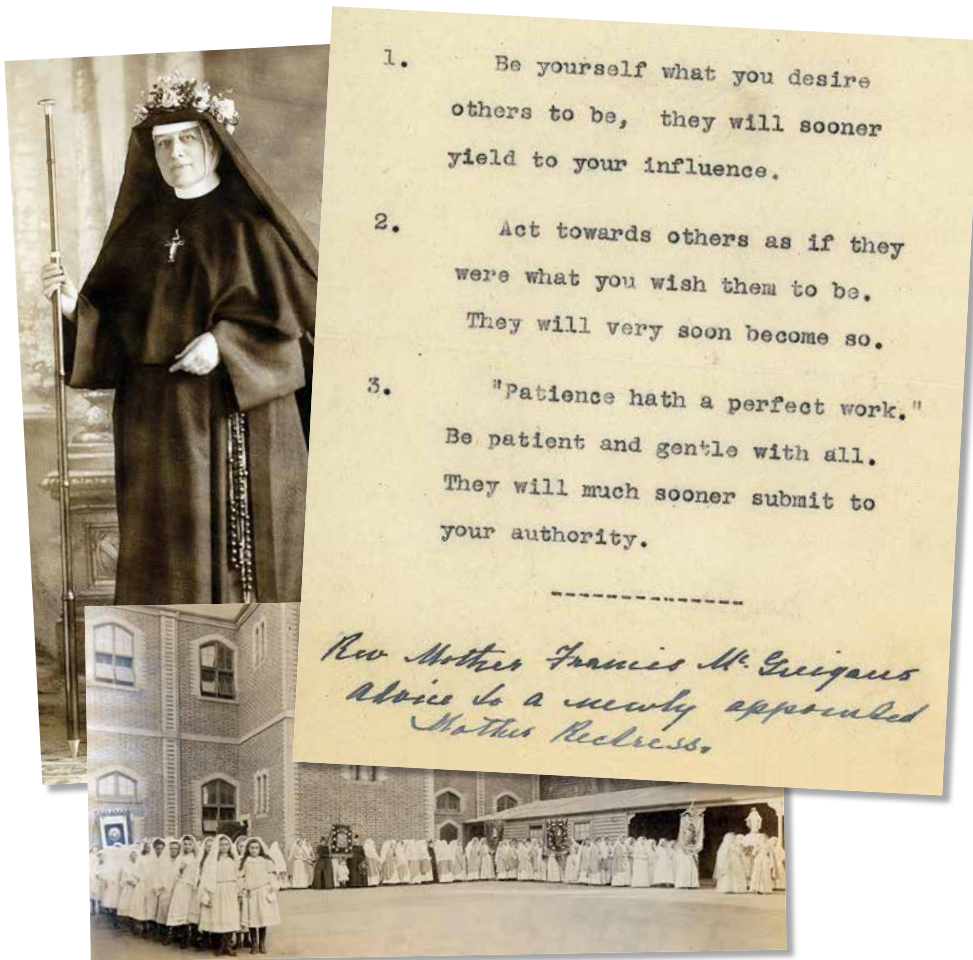 1. Be yourself what you desire
others to be, they will sooner
yield to your influence.
2. Act towards others as if they
were what you wish them to be.
They will very soon become so.
3. "Patience hath a perfect work."
Be patient and gentle with all.
They will much sooner submit to
your authority.
--------------
Rev Mother Francis Mc. Guigans
advice to a newly appointed
Mother Rectress.